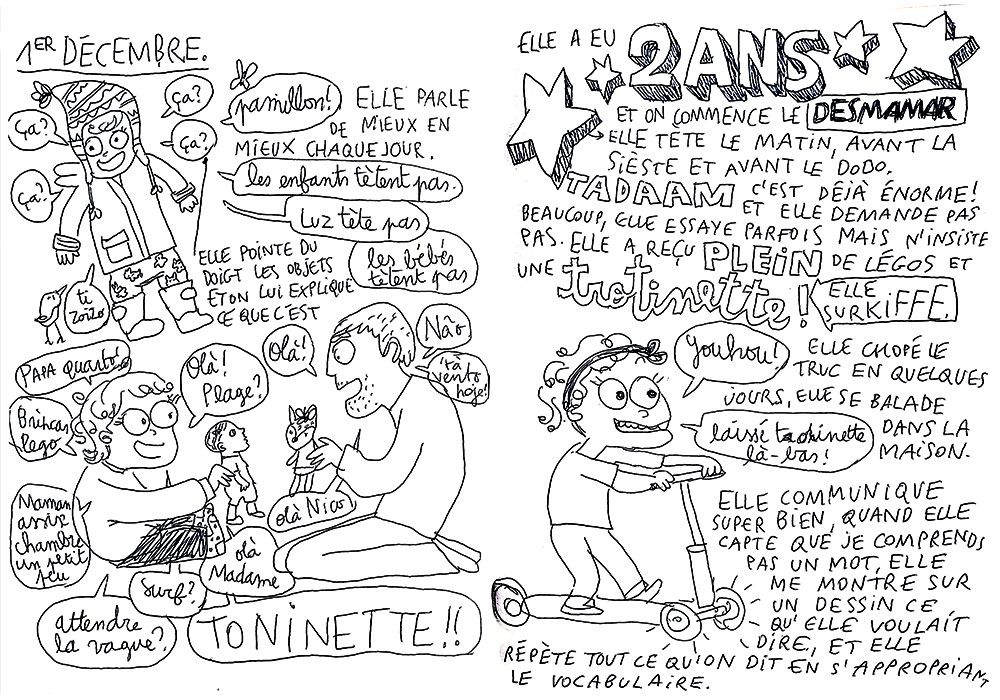 1ER DÉCEMBRE.
Ça?
Ça?
Ça?
Ça?
pamillon!
ELLE PARLE
DE MIEUX EN
MIEUX CHAQUE JOUR.
les enfants tètent pas.
Luz tète pas
les bébés
tètent pas
ELLE POINTE DU
DOIGT LES OBJETS
ET ON LUI EXPLIQUE
CE QUE C'EST
ti
zoizo
PAPA quarto!
Brincar
lego
Olà!
Plage?
Olà!
Não
tà
vento
hoje!
Maman
assix
chambre
un petit
peu
olà Nico!
olà
Madame
Surf?
attendre
la vague?
TONINETTE!!
ELLE A EU 2 ANS
ET ON COMMENCE LE DESMAMAR
ELLE TÈTE LE MATIN, AVANT LA
SIÈSTE ET AVANT LE DODO.
TADAAM C'EST DÉJÀ ÉNORME!
ET ELLE DEMANDE PAS
BEAUCOUP, ELLE ESSAYE PARFOIS MAIS N'INSISTE
PAS. ELLE A REÇU PLEIN DE LÉGOS ET
UNE trotinette! ELLE
SURKIFFE.
Youhou!
ELLE CHOPÉ LE
TRUC EN QUELQUES
JOURS, ELLE SE BALADE
DANS LA
MAISON.
laissé là-bas!
ELLE COMMUNIQUE
SUPER BIEN, QUAND ELLE
CAPTE QUE JE COMPRENDS
PAS UN MOT, ELLE
ME MONTRE SUR
UN DESSIN CE
QU'ELLE VOULAIT
DIRE, ET ELLE
RÉPÈTE TOUT CE QU'ON DIT EN S'APPROPRIANT
LE VOCABULAIRE.